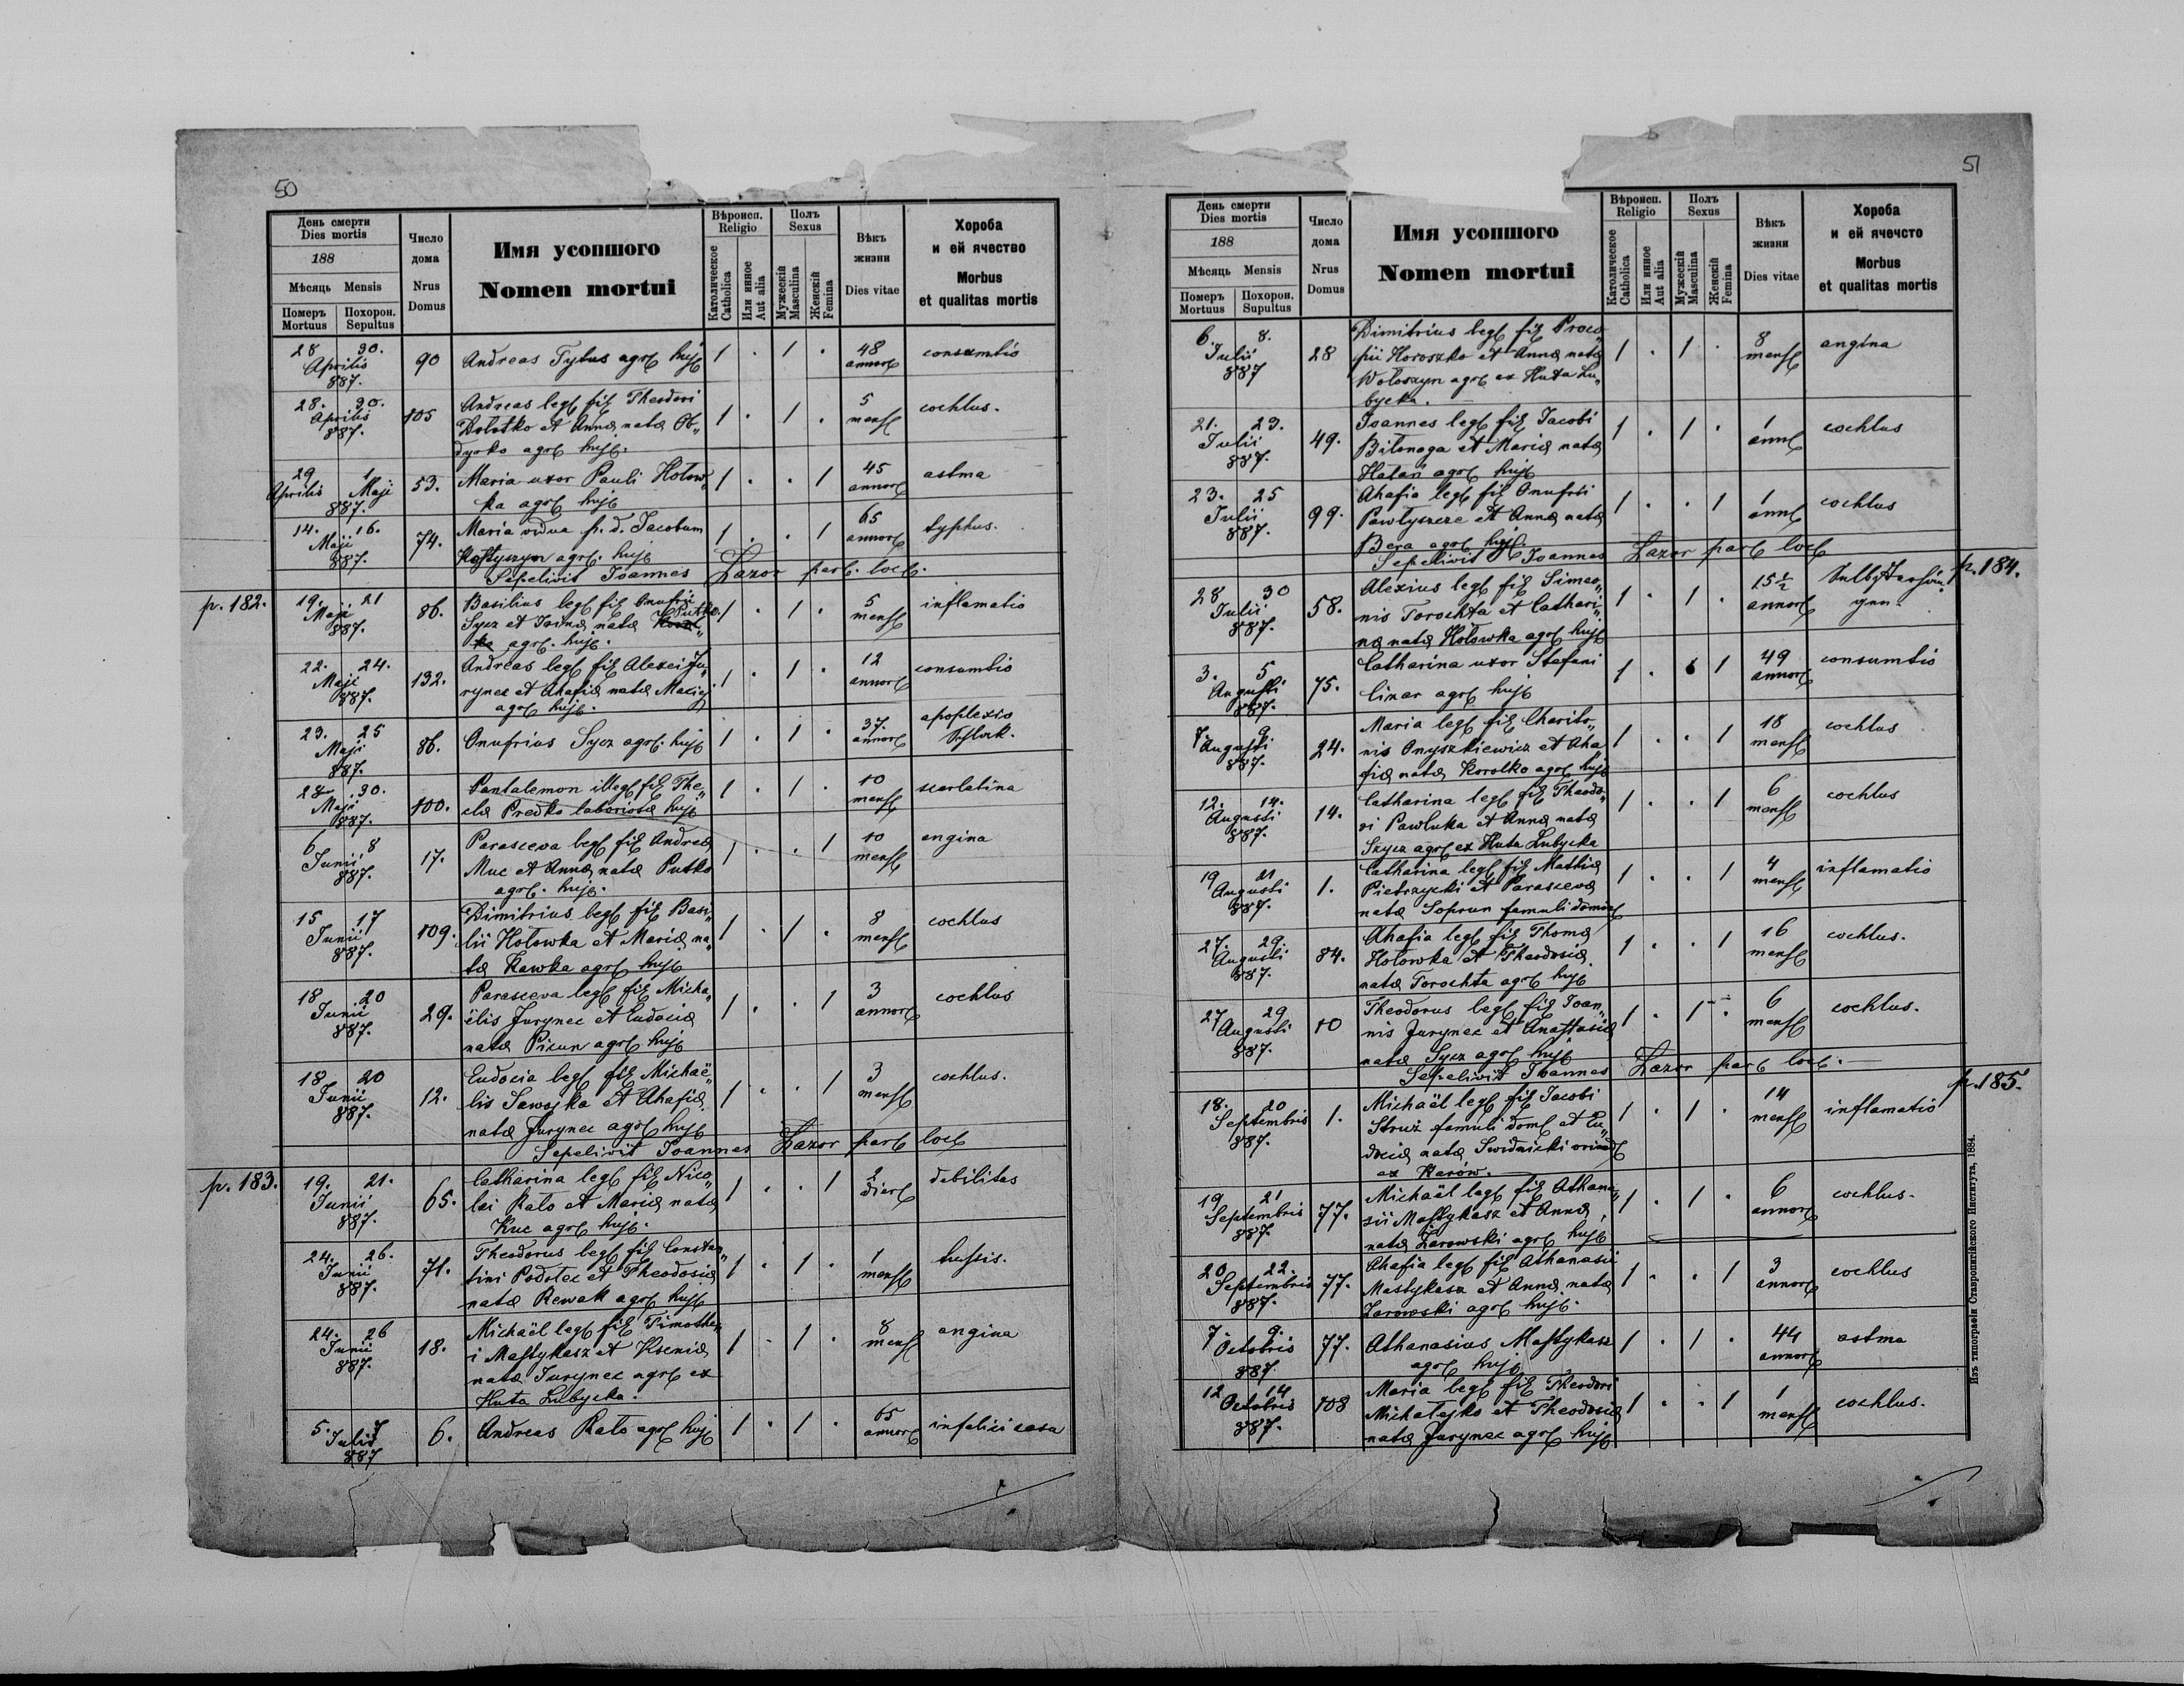 50
День смерти
Dies mortis
188
Мѣсяць Mensis
Померъ
Mortuus
Похорон.
Sepultus
Число
дома
Nrus
Domus
Имя усопшого
Nomen mortui
Вѣроисп.
Religio
Католическое
Catholica
Или инное
Aut alia
Полъ
Sexus
Мужескій
Masculina
Женскій
Femina
Вѣкъ
жизни
Dies vitae
Хороба
и ей ячество
Morbus
et qualitas mortis
28 30.
Aprilis
887.
90
Andreas Tybus agrl huj
1 . 1 .
48
annor
consumtio
28. 30.
Aprilis
887.
105
Andreas leg fil Theodori
Bolotko et Anna nata Ob„
dyrko agrl huj.
1 . 1 .
5
mens
cochlus.
29 1
Aprilis Maji
887.
53.
Maria uxor Pauli Hołow„
ka agrl huj
1 . . 1
45
annor
astma
14. 16.
Maji
887.
74.
Maria vidua p. d. Jacobum
Kostyszyn agrl. huj
1 . . 1
65
annor
typhus.
Sepelivit Joannes Łazor par. loc.
p. 182.
19. 21
Maji
887.
86.
Basilius leg fil Onufrii
Sycz et Anna nata Putko
agrl. huj.
1 . 1 .
5
mens
inflamatio
22. 24.
Maji
887.
132.
Andreas leg fil Alexei Ju„
rynec et Ahafia nata Maciej
agrl huj.
1 . 1 .
12
annor
consumtio
23. 25
Maji
887.
86.
Onufrius Sycz agrl. huj
1 . 1 .
37.
annor
apoplexio
Schlack.
28 30.
Maji
887.
100.
Pantalemon illeg fil The„
cla Predko laboriosa huj
1 . 1 .
10
mens
scarlatina
6 8
Junii
887.
17.
Parasceva leg fil Andrea
Muc et Anna nata Putko
agrl. huj.
1 . . 1
10
mens
angina
15 17
Junii
887.
109.
Dimitrius leg fil Basi„
lii Hołowka et Maria na„
ta Kawka agrl huj
1 . 1 .
8
mens
cochlus
18 20
Junii
887.
29.
Parasceva leg fil Micha„
ëlis Jurynec et Eudocia
nata Picun agrl huj
1 . . 1
3
annor
cochlus
18 20
Junii
887.
12.
Eudocia leg fil Michaë„
lis Sawojka et Ahafia
nata Jurynec agrl huj
1 . . 1
3
mens
cochlus.
Sepelivit Joannes Łazor par loc
p. 183.
19. 21.
Junii
887.
65.
Catharina leg fil Nico„
lai Rało et Maria nata
Kuc agrl huj.
1 . . 1
2
dier
debilitas
24. 26.
Junii
887.
71.
Theodorus leg fil Constan„
tini Podolec et Theodosia
nata Rewak agrl huj
1 . 1 .
1
mens
tussis.
24. 26
Junii
887.
18.
Michaël leg fil Timothe„
i Mastykasz et Ksenia
nata Jurynec agrl ex
Huta Lubycka.
1 . 1 .
8
mens
angina
5. 7
Julii
887
6.
Andreas Rało agrl huj
1 . 1 .
65
annor
infelici casu
51
День смерти
Dies mortis
188
Мѣсяць Mensis
Померъ
Mortuus
Похорон.
Supultus
Число
дома
Nrus
Domus
Имя усопшого
Nomen mortui
Вѣроисп.
Religio
Католическое
Catholica
Или инное
Aut alia
Полъ
Sexus
Мужескій
Masculina
Женскій
Femina
Вѣкъ
жизни
Dies vitae
Хороба
и ей ячечсто
Morbus
et qualitas mortis
6 8.
Julii
887
28
Dimitrius leg fil Proco„
pii Horoszko et Anna nata
Wołoszyn agrl ex Huta Lu„
bycka.
1 . 1 .
8
mens
angina
21. 23.
Julii
887.
49.
Joannes leg fil Jacobi
Biłonoga et Maria nata
Hałań agrl huj
1 . 1 .
1
ann
cochlus
23. 25
Julii
887.
99.
Ahafia leg fil Onufrii
Pawłyszcze et Anna nata
Bera agrl huj
1 . . 1
1
ann
cochlus
Sepelivit Joannes Łazor par loc
p. 184.
28 30
Julii
887.
58.
Alexius leg fil Simeo„
nis Torochta et Cathari„
na nata Hołowka agrl huj
1 . 1 .
15 1/2
annor
3. 5
Augusti
887.
75.
Catharina uxor Stefani
Cinar agrl huj
1 . . 1
49
annor
consumtio
7. 9.
Augusti
887.
24.
Maria leg fil Charito„
nis Onyszkiewicz et Aha„
fia nata Korolko agrl huj
1 . . 1
18
mens
cochlus
12. 14.
Augusti
887.
14.
Catharina leg fil Theodo„
ri Pawluka et Anna nata
Szycz agrl ex Huta Lubycka
1 . . 1
6
mens
cochlus
19 21
Augusti
887.
1.
Catharina leg fil Mathia
Pietrzycki et Parasceva
nata Soprun famuli domin
1 . . 1
4
mens
inflamatio
27. 29.
Augusti
887.
84.
Ahafia leg fil Thoma
Hołowka et Theodosia
nata Torochta agrl huj
1 . . 1
16
mens
cochlus.
27 29
Augusti
887.
10
Theodorus leg fil Joan„
nis Jurynec et Anastasia
nata Sycz agrl huj
1 . 1 .
6
mens
cochlus.
Sepelivit Joannes Łazor par loc.
p. 185.
18. 20
Septembris
887.
1.
Michaël leg fil Jacobi
Struż famuli dom et Eu„
docia nata Swidnicki oriund
ex Karów.
1 . 1 .
14
mens
inflamatio
19 21
Septembris
887.
77.
Michaël leg fil Athana„
sii Mastykasz et Anna
nata Żarowski agrl huj
1 . 1 .
6
annor
cochlus.
20 22.
Septembris
887.
77.
Ahafia leg fil Athanasii
Mastykasz et Anna nata
Żarowski agrl huj.
1 . . 1
3
annor
cochlus
7 9.
Octobris
887
77.
Athanasius Mastykasz
agrl huj
1 . 1 .
44
annor
astma
12 14
Octobris
887.
108
Maria leg fil Theodori
Michalejko et Theodosia
nata Jurynec agrl huj
1 . . 1
1
mens
cochlus.
Изъ типографіи Ставропигійского Института, 1884.